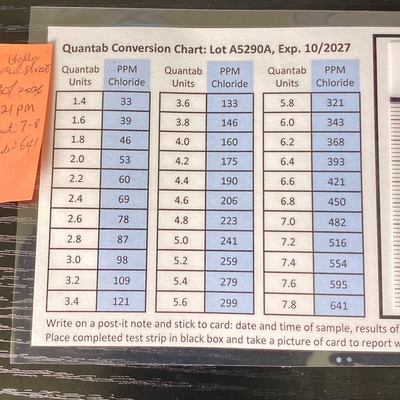 Quantab Conversion Chart: Lot A5290A, Exp. 10/2027
Quantab Units PPM Chloride Quantab Units PPM Chloride Quantab Units PPM Chloride
1.4 33 3.6 133 5.8 321
1.6 39 3.8 146 6.0 343
1.8 46 4.0 160 6.2 368
2.0 53 4.2 175 6.4 393
2.2 60 4.4 190 6.6 421
2.4 69 4.6 206 6.8 450
2.6 78 4.8 223 7.0 482
2.8 87 5.0 241 7.2 516
3.0 98 5.2 259 7.4 554
3.2 109 5.4 279 7.6 595
3.4 121 5.6 299 7.8 641
Write on a post-it note and stick to card: date and time of sample, results of
Place completed test strip in black box and take a picture of card to report w
21 PM
7.8
641